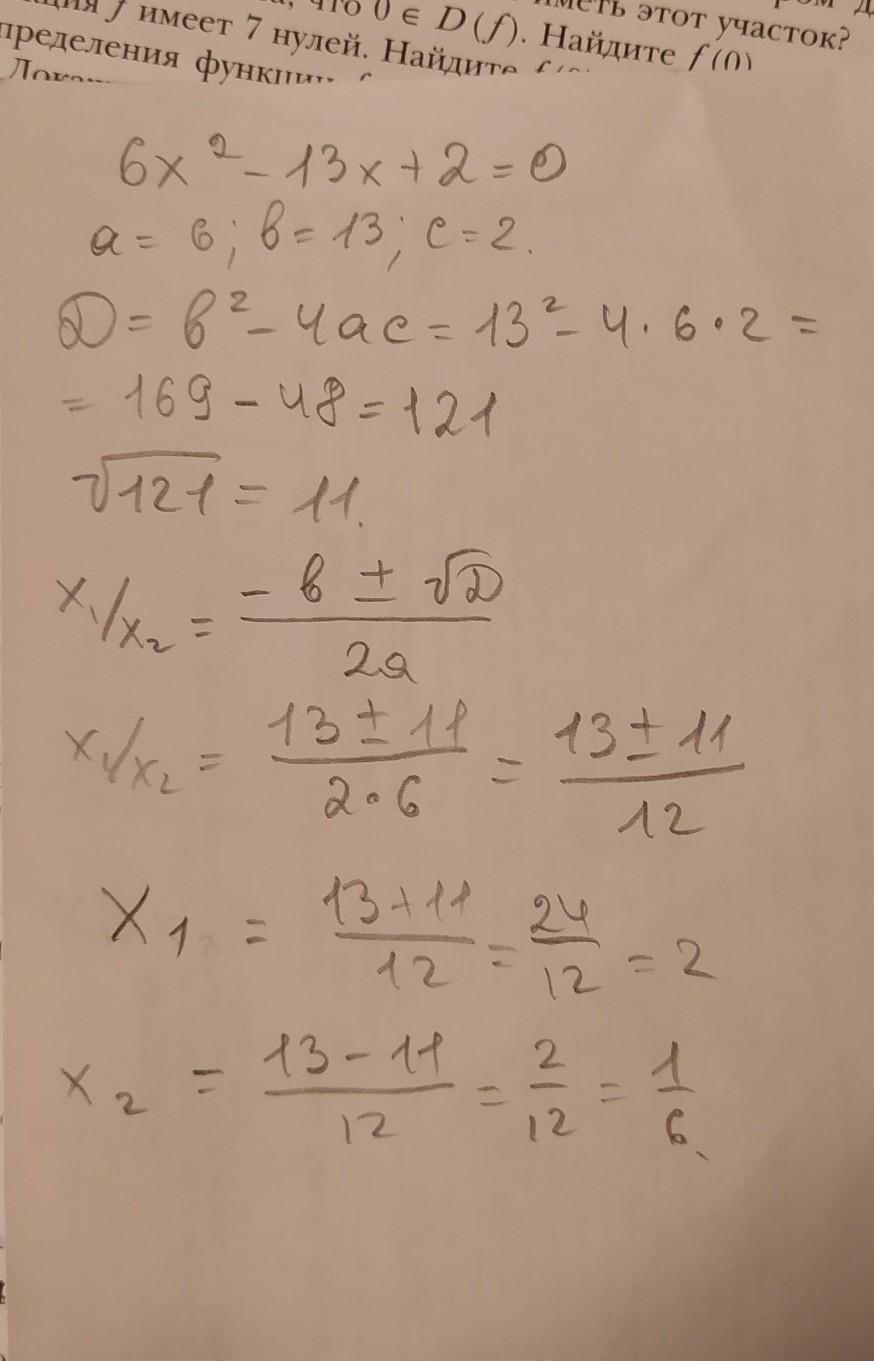 что 0 ∈ D(f). Найдите этот участок?
имеет 7 нулей. Найдите f(0)
пределения функции
6x² - 13x + 2 = 0
a = 6; b = 13; c = 2.
D = b² - 4ac = 13² - 4 · 6 · 2 =
= 169 - 48 = 121
√121 = 11.
x₁/x₂ = (-b ± √D)/2a
x₁/x₂ = (13 ± 11)/(2·6) = (13 ± 11)/12
x₁ = (13+11)/12 = 24/12 = 2
x₂ = (13-11)/12 = 2/12 = 1/6